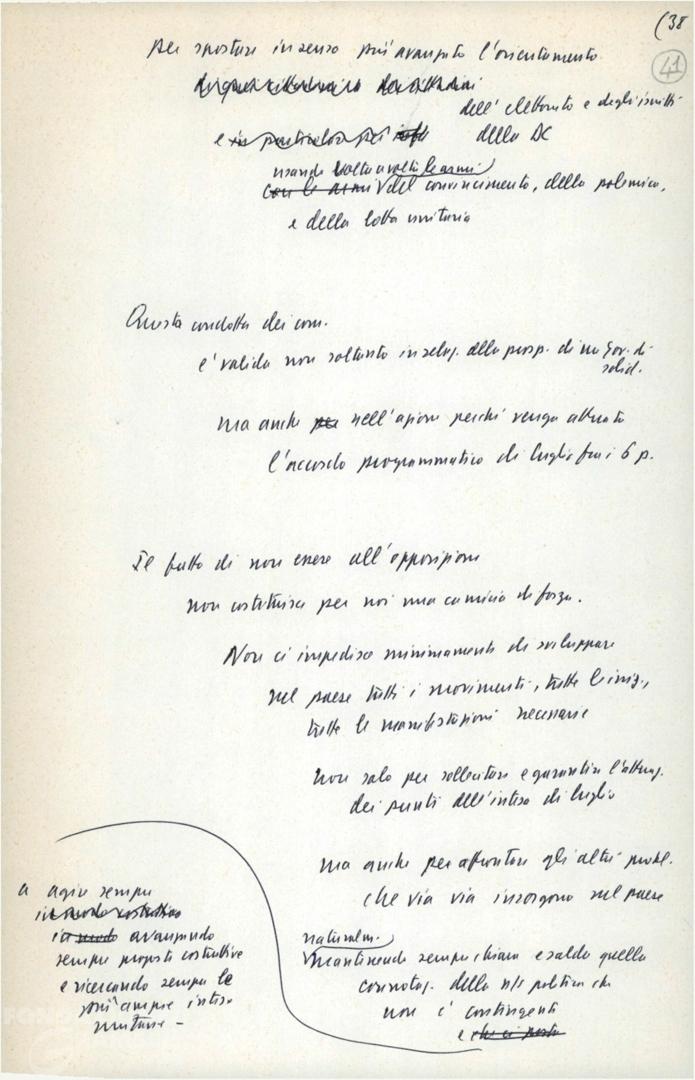 (38
41
per spostare in senso più avanzato l'orientamento
dell'elettorato e degli iscritti
e in particolare per della DC
usando volta a volta le armi
con le armi del convincimento, della polemica,
e della lotta unitaria
Questa condotta dei com.
è valida non soltanto in relaz. alla prosp. di un gov. di
solid.
ma anche per nell'azione perché venga attuato
l'accordo programmatico di luglio fra i 6 p.
Il fatto di non essere all'opposizione
non costituisce per noi una camicia di forza.
Non ci impedisce minimamente di sviluppare
nel paese tutti i movimenti, tutte le iniz.,
tutte le manifestazioni necessarie
non solo per sollecitare e garantire l'attuaz.
dei punti dell'intesa di luglio
ma anche per affrontare gli altri probl.
che via via insorgono nel paese
naturalm.
mantenendo sempre chiara e salda quella
connotaz. della ns politica che
non è contingente
e che ci porta
a agire sempre
in modo costruttivo
in modo avanzando
sempre proposte costruttive
e ricercando sempre le
più ampie intese
unitarie –